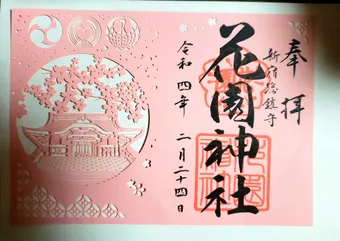 奉拝
新宿総鎮守
花園神社
令和四年 二月二十四日